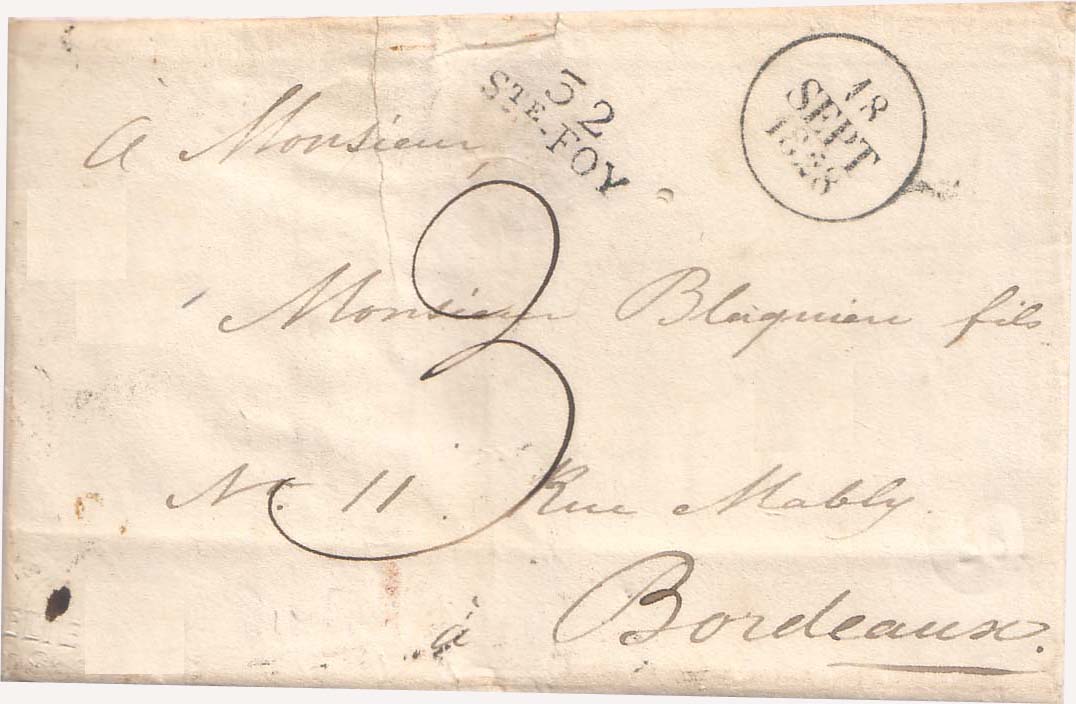 32
STE-FOY
18
SEPT
1828
a Monsieur
Monsieur Blaquiere fils
3
No. 11. Rue Mably.
à
Bordeaux.